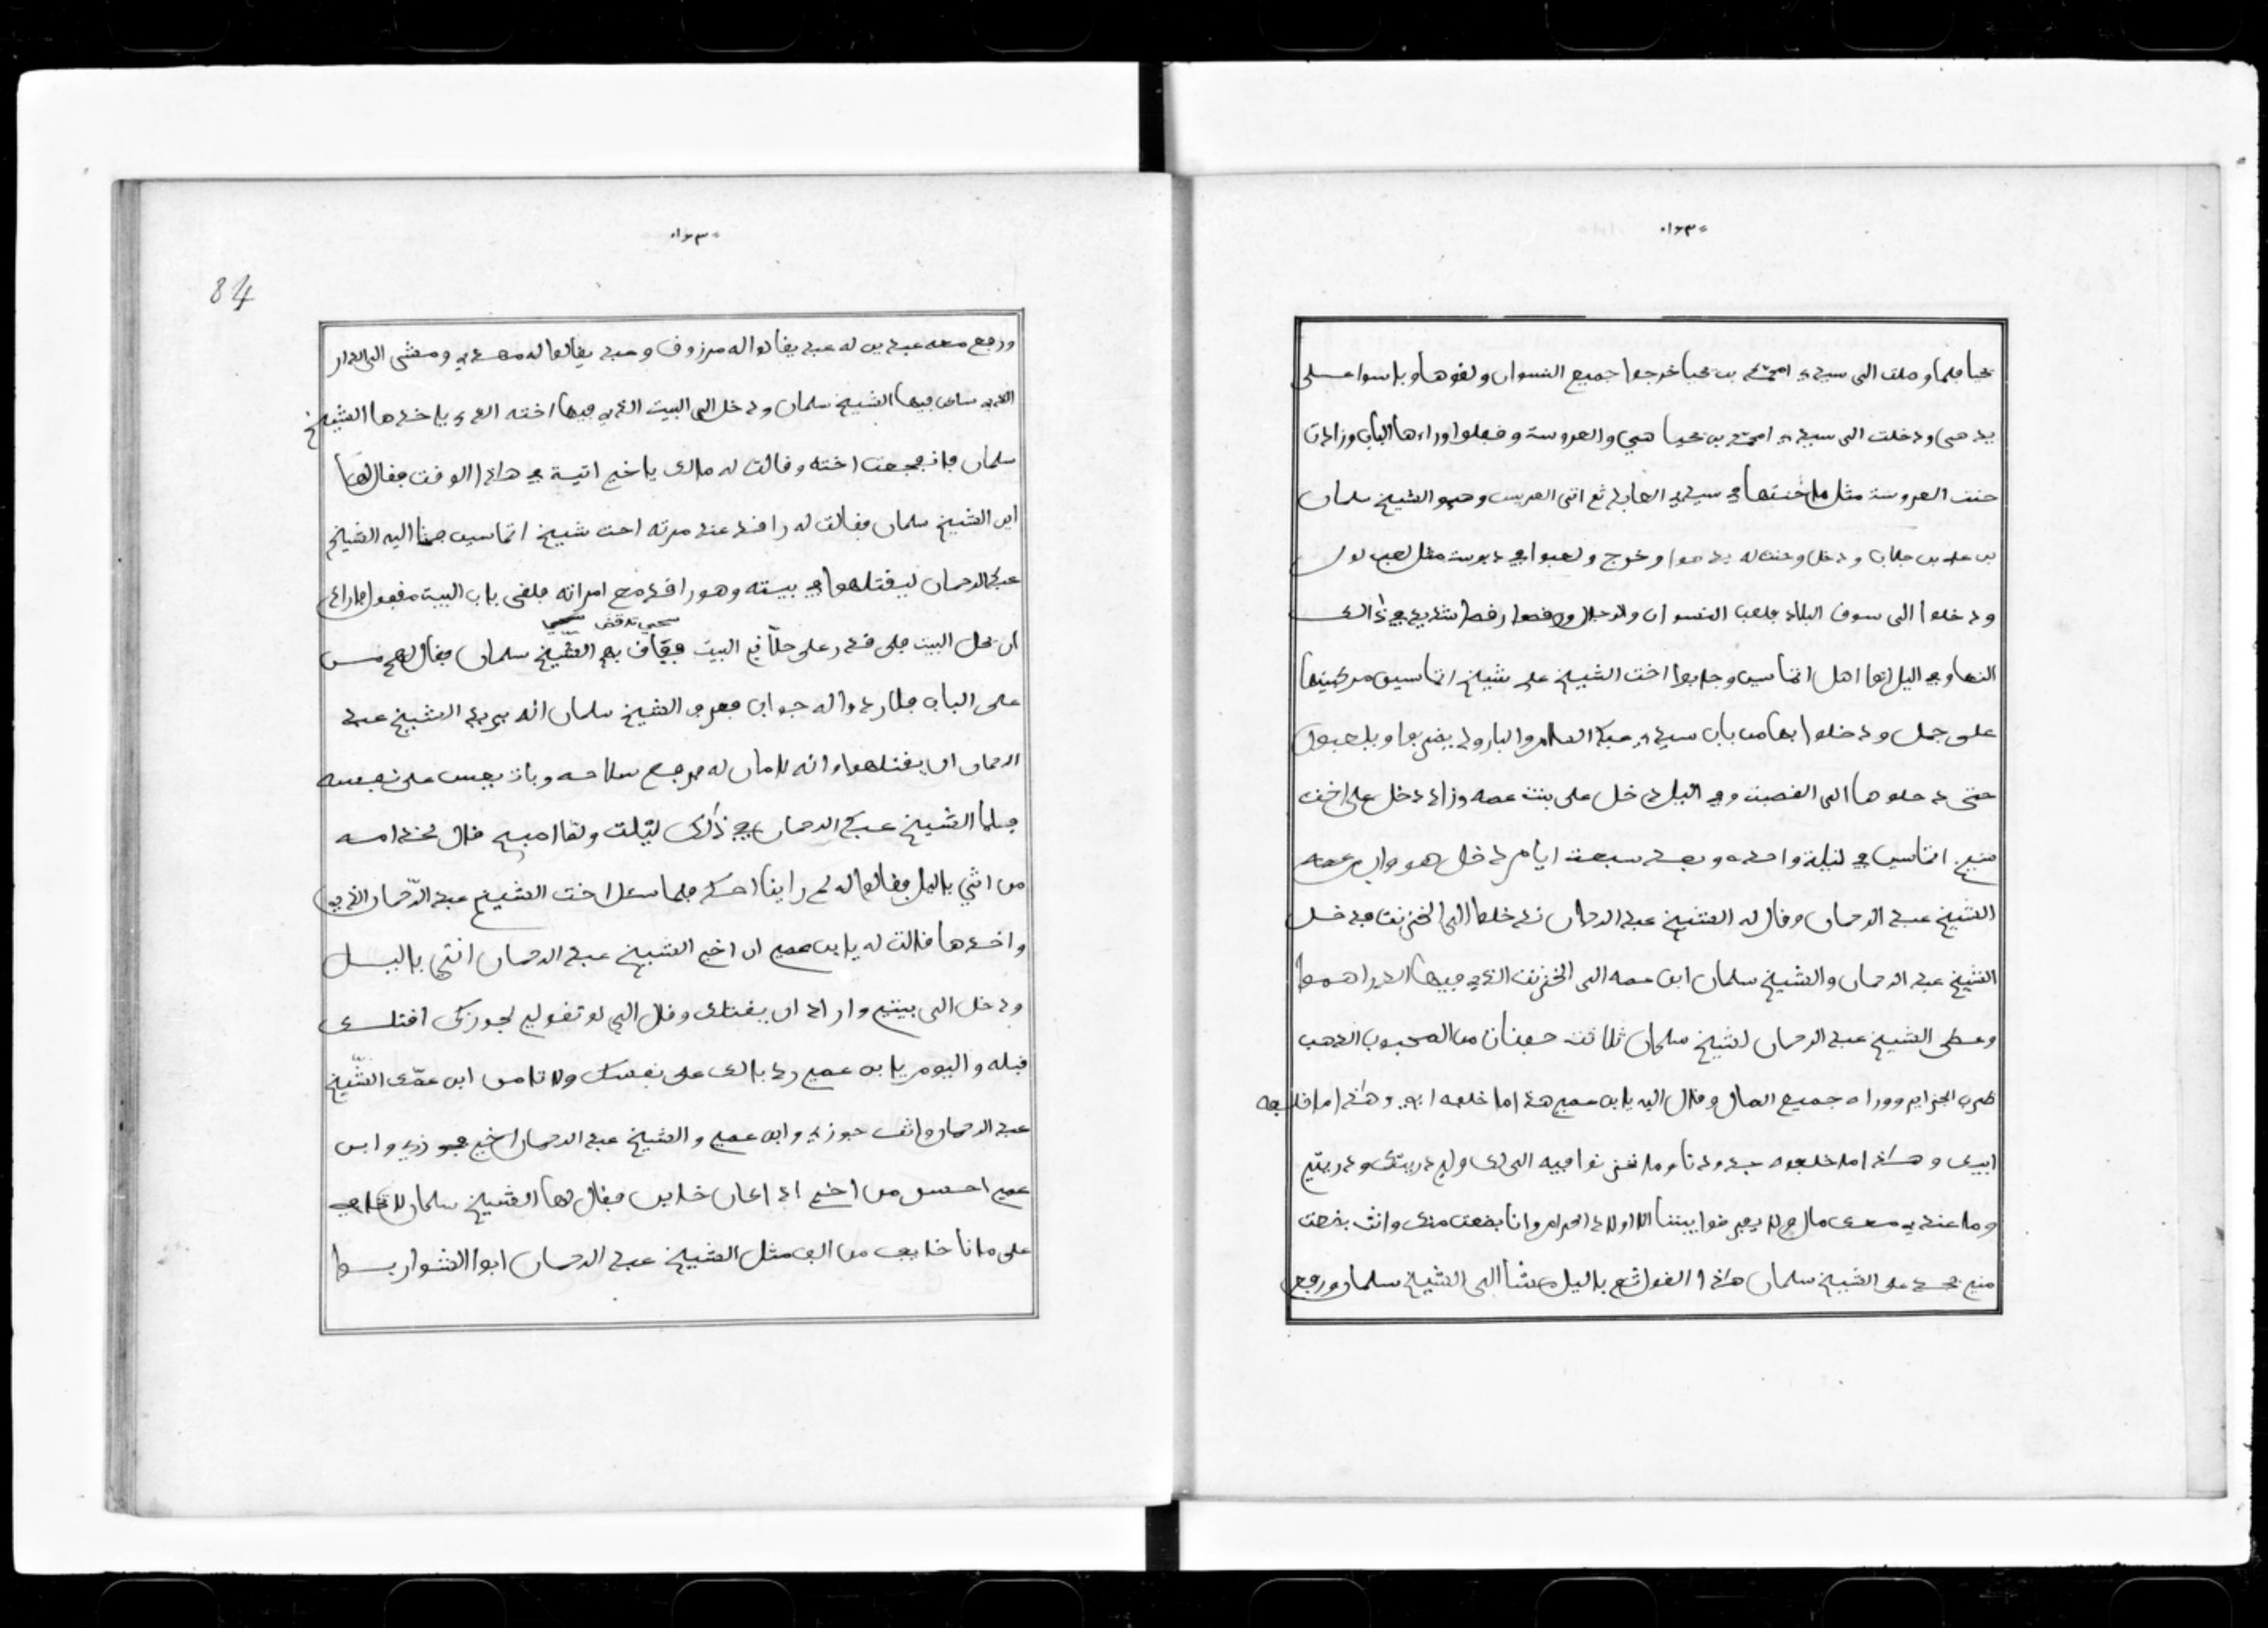 يحيا فلما وصلت الى سيدي امحمد بن يحيا خرجوا جميع النسوان ولقوها وباسوا على
يدهى ودخلت الى سيدي امحمد بن يحيا هي والعروسة وقبلوا وراءها الباب وزادت
حنت العروسة مثل ما حنتها في سيدي العابد ثم اتى العريس وهو الشيخ سلمان
بن علي بن جلاب ودخل وحنت له يده وخرج ولعبوا في مثل لعب
ودخلوا الى سوق البلاد بلعب النسوان والرجال ورقصوا رقصا شديد في ذالك
النهار وفي اليل اتوا اهل اتماسين وجابوا اخت الشيخ علي شيخ اتماسين مركبينها
على جمل ودخلوا بها من باب سيدي عبد السلام والبارود يضربوا ويلعبون
حتى دخلوها الى القصبة وفي اليل دخل على بنت عمه وزاد دخل على اخت
شيخ اتماسين في ليلة واحده وبعد سبعة ايام دخل هو وابن عمه
الشيخ عبد الرحمان وقال له الشيخ عبد الرحمان ندخلوا الى الخزنت فدخل
الشيخ عبد الرحمان والشيخ سلمان ابن عمه الى الخزنت الذي فيها الدراهم
وعطى الشيخ عبد الرحمان لشيخ سلمان ثلاثت حفنات من المحبوب الذهب
ضرب الجزاير ووراه جميع المال وقال اليه يا بن عمي هذا ما خلفه ابي وهذا ما خلفه
ابيك وهذا ما خلفوه جدودنا وما نحن نوا فيه الى لك ولي دريتك ودريتي
وما عندي معك مال ولا يفرقوا بيننا الا اولاد الحرام وانا بضعت منك وانت بضعت
مني على الشيخ سلمان هذا القول ثم باليل مشا الى الشيخ سلمان ورجع
84
ورجع معه عبدين له عبد يقالوا له مرزوق وعبد يقالوا له مهدي ومشى الى الدار
الذي ساكن فيها الشيخ سلمان ودخل الى البيت الذي فيها اخته الذي ياخذها الشيخ
سلمان فانفجعت اخته وقالت له مالك يا خي اتيت في هذا الوقت فقال لها
اين الشيخ سلمان فقالت له راقد عند مرته اخت شيخ اتماسين فمشا اليه الشيخ
عبد الرحمان ليقتلهو في بيته وهو راقد مع امراته فلقى باب البيت مقفول فاراد
ان يحل البيت فلى قدر على حلان البيت فقاف بهم الشيخ سلمان فقال لهم من
على الباب فلا ردوا له جواب فعرف الشيخ سلمان انه يريد الشيخ عبد
الرحمان ان يقتلهوا وانه لا مان له فرجع سلاحه وبات يعس على نفسه
فلما الشيخ عبد الرحمان في ذلك ليلت ولما اصبح قال لخدامه
من اتى باليل فقالوا له لم راينا احد فلما سال اخت الشيخ عبد الرحمان الذي
واخذها قالت له يا بن عمي ان اخي الشيخ عبد الرحمان اتى باليل
ودخل الى بيتي واراد ان يقتلك وقال الي لو تقولي لجوزك اقتلك
قبله واليوم يا بن عمي رد بالك على نفسك ولا تامن ابن عمك الشيخ
عبد الرحمان وانت جوزي وابن عمي والشيخ عبد الرحمان اخي جوزي وابن
عمي احسن من اخي اذا كان خاين فقال لها الشيخ سلمان لا تخافي
على مانا خايف من الف مثل الشيخ عبد الرحمان ابوا الشوارب